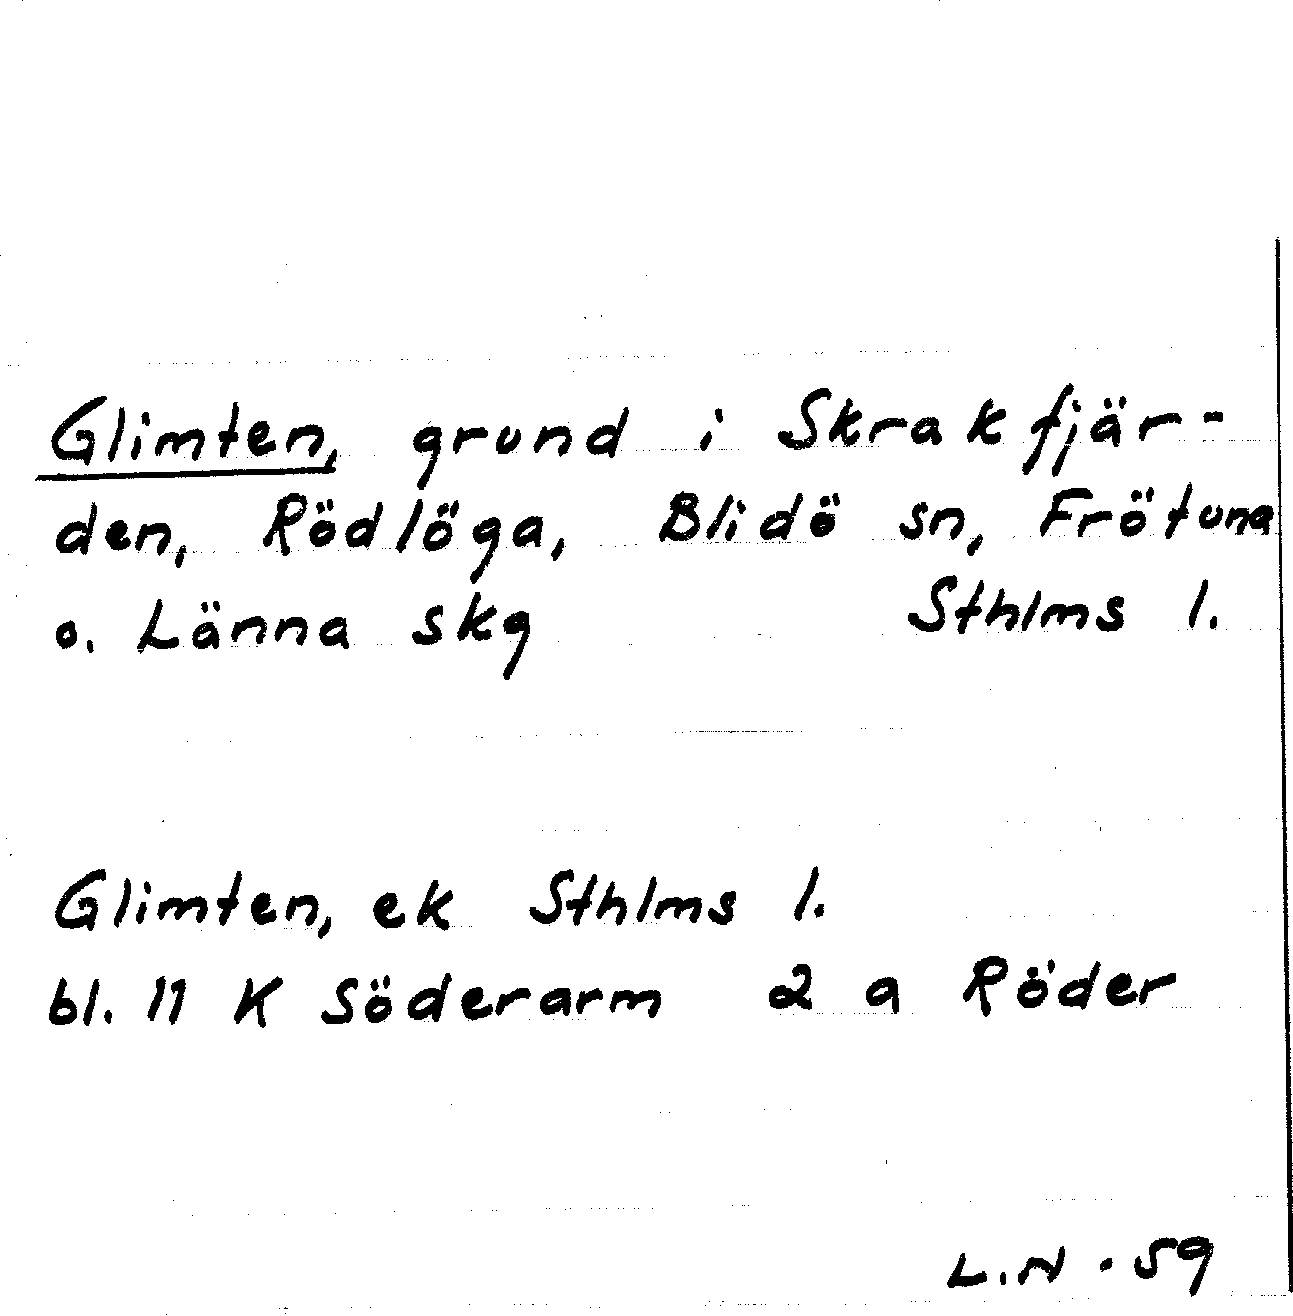 Glimten, grund i Skrakfjär-
den, Rödlöga, Blidö sn, Frötuna
o. Länna skg Sthlms l.
Glimten, ek Sthlms l.
bl. 11 K Söderarm 2 a Röder
L.N. 59